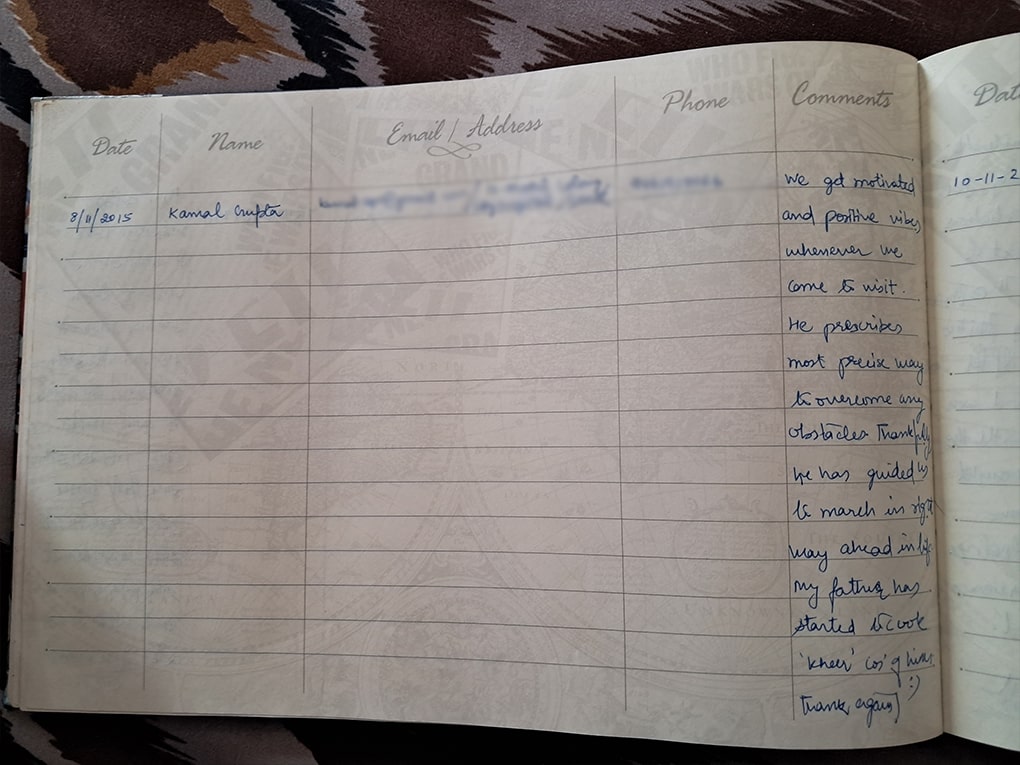 Date Name Email / Address Phone Comments
8/11/2015 Kamal Gupta
We get motivated
and positive vibes
whenever we
come to visit.
He prescribes
most precise way
to overcome any
obstacles Thankfully
He has guided us
to march in right
way ahead in life
My father has
started to cook
'kheer' cos' of him
:)
Thank again
Dat
10-11-2